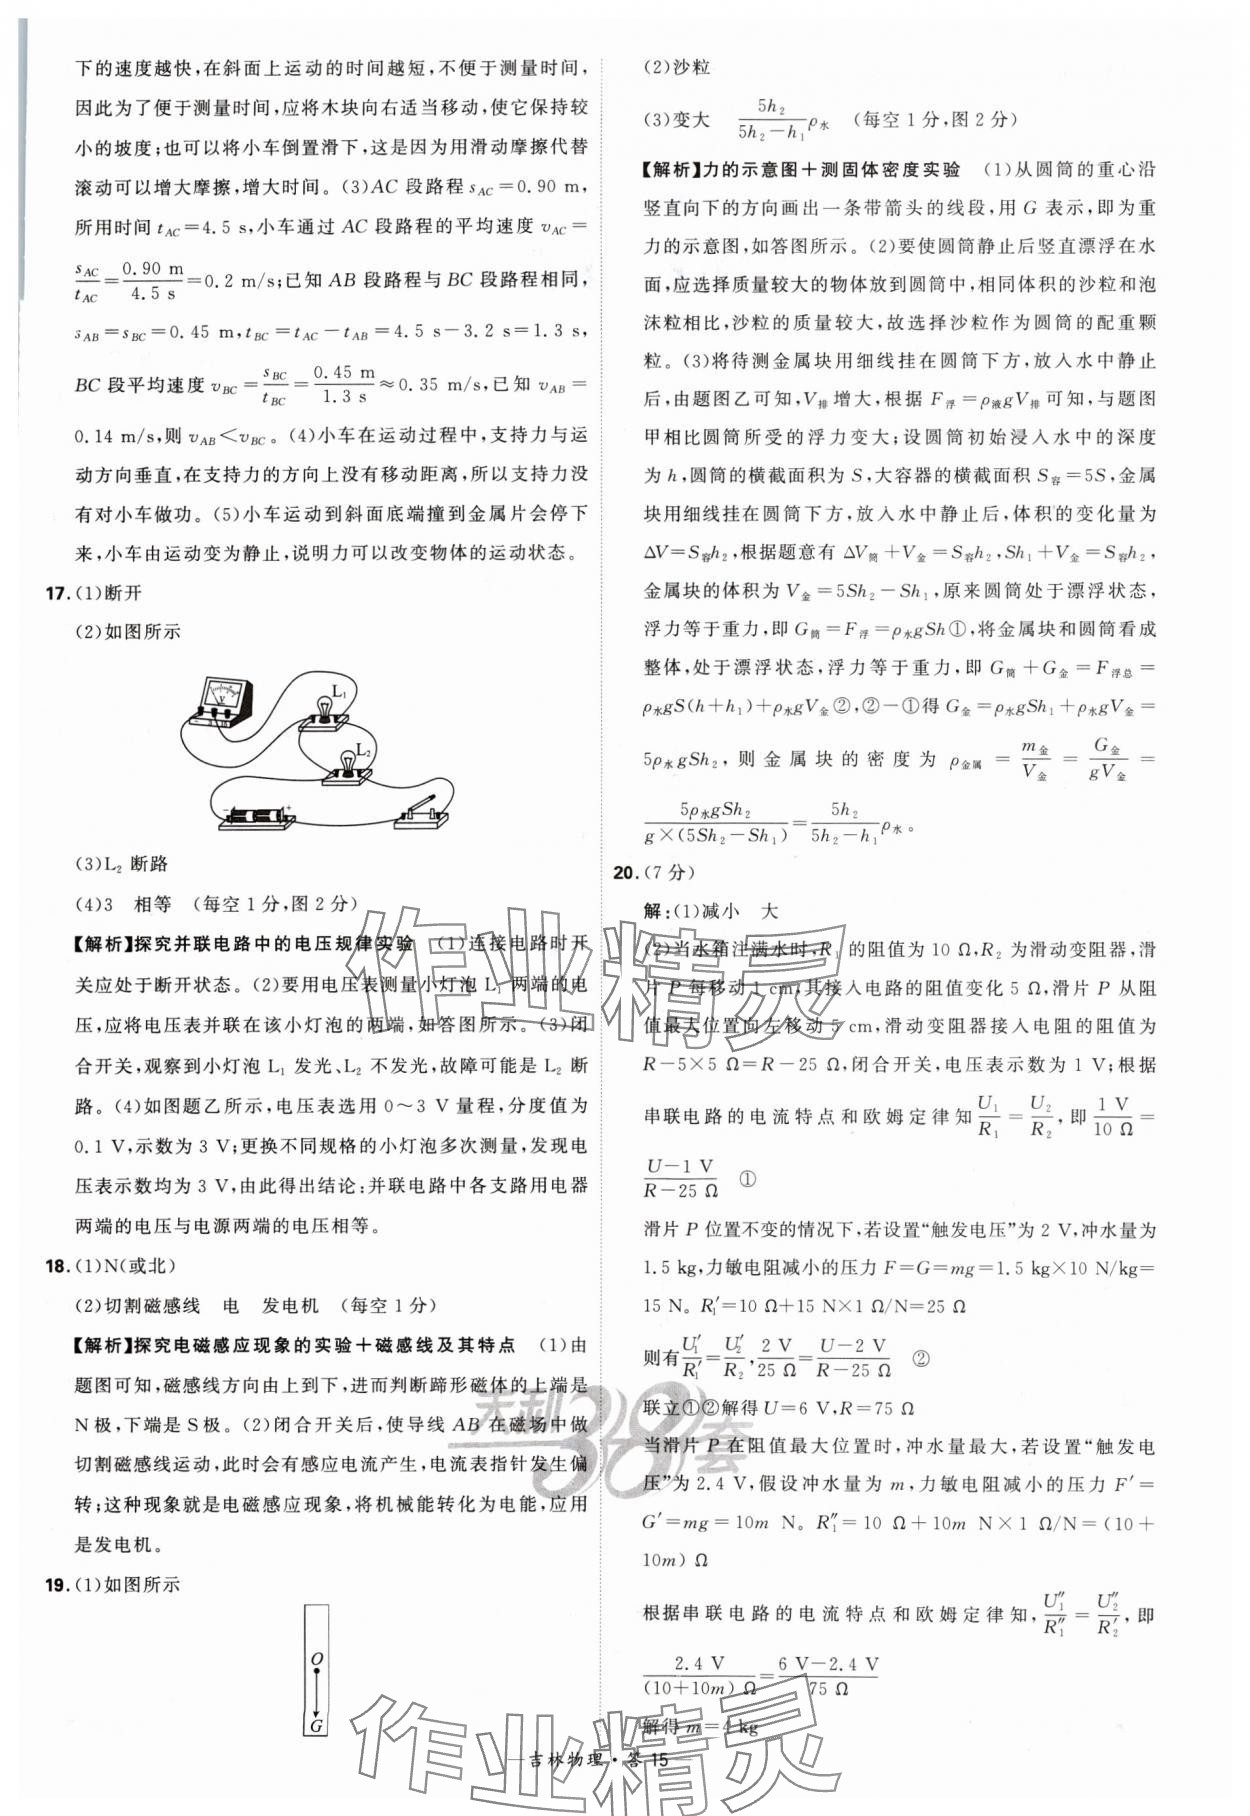 下的速度越快,在斜面上运动的时间越短,不便于测量时间,
因此为了便于测量时间,应将木块向右适当移动,使它保持较
小的坡度;也可以将小车倒置滑下,这是因为用滑动摩擦代替
滚动可以增大摩擦,增大时间。(3)AC 段路程 s_AC=0.90 m,
所用时间 t_AC=4.5 s,小车通过 AC 段路程的平均速度 v_AC=
s_AC/t_AC=0.90 m/4.5 s=0.2 m/s;已知 AB 段路程与 BC 段路程相同,
s_AB=s_BC=0.45 m,t_BC=t_AC-t_AB=4.5 s-3.2 s=1.3 s,
BC 段平均速度 v_BC=s_BC/t_BC=0.45 m/1.3 s≈0.35 m/s,已知 v_AB=
0.14 m/s,则 v_AB<v_BC。(4)小车在运动过程中,支持力与运
动方向垂直,在支持力的方向上没有移动距离,所以支持力没
有对小车做功。(5)小车运动到斜面底端撞到金属片会停下
来,小车由运动变为静止,说明力可以改变物体的运动状态。
17.(1)断开
(2)如图所示
V
L₁
L₂
- +
(3)L₂ 断路
(4)3 相等 (每空1分,图2分)
【解析】探究并联电路中的电压规律实验 (1)连接电路时开
关应处于断开状态。(2)要用电压表测量小灯泡 L₁ 两端的电
压,应将电压表并联在该小灯泡的两端,如答图所示。(3)闭
合开关,观察到小灯泡 L₁ 发光、L₂ 不发光,故障可能是 L₂ 断
路。(4)如图题乙所示,电压表选用 0~3 V 量程,分度值为
0.1 V,示数为 3 V;更换不同规格的小灯泡多次测量,发现电
压表示数均为 3 V,由此得出结论:并联电路中各支路用电器
两端的电压与电源两端的电压相等。
18.(1)N(或北)
(2)切割磁感线 电 发电机 (每空1分)
【解析】探究电磁感应现象的实验+磁感线及其特点 (1)由
题图可知,磁感线方向由上到下,进而判断蹄形磁体的上端是
N极,下端是S极。(2)闭合开关后,使导线 AB 在磁场中做
切割磁感线运动,此时会有感应电流产生,电流表指针发生偏
转;这种现象就是电磁感应现象,将机械能转化为电能,应用
是发电机。
19.(1)如图所示
O
G
(2)沙粒
(3)变大 5h₂/(5h₂-h₁)ρ水 (每空1分,图2分)
【解析】力的示意图+测固体密度实验 (1)从圆筒的重心沿
竖直向下的方向画出一条带箭头的线段,用 G 表示,即为重
力的示意图,如答图所示。(2)要使圆筒静止后竖直漂浮在水
面,应选择质量较大的物体放到圆筒中,相同体积的沙粒和泡
沫粒相比,沙粒的质量较大,故选择沙粒作为圆筒的配重颗
粒。(3)将待测金属块用细线挂在圆筒下方,放入水中静止
后,由题图乙可知,V排增大,根据 F浮=ρ液gV排可知,与题图
甲相比圆筒所受的浮力变大;设圆筒初始浸入水中的深度
为 h,圆筒的横截面积为 S,大容器的横截面积 S容=5S,金属
块用细线挂在圆筒下方,放入水中静止后,体积的变化量为
ΔV=S容h₂,根据题意有 ΔV筒+V金=S容h₂,Sh₁+V金=S容h₂,
金属块的体积为 V金=5Sh₂-Sh₁,原来圆筒处于漂浮状态,
浮力等于重力,即 G筒=F浮=ρ水gSh①,将金属块和圆筒看成
整体,处于漂浮状态,浮力等于重力,即 G筒+G金=F浮总=
ρ水gS(h+h₁)+ρ水gV金②,②-①得 G金=ρ水gSh₁+ρ水gV金=
5ρ水gSh₂,则金属块的密度为 ρ金属=m金/V金=G金/gV金=
5ρ水gSh₂/g×(5Sh₂-Sh₁)=5h₂/(5h₂-h₁)ρ水。
20.(7分)
解:(1)减小 大
(2)当水箱注满水时,R₁ 的阻值为 10 Ω,R₂ 为滑动变阻器,滑
片 P 每移动 1 cm,其接入电路的阻值变化 5 Ω,滑片 P 从阻
值最大位置向左移动 5 cm,滑动变阻器接入电阻的阻值为
R-5×5 Ω=R-25 Ω,闭合开关,电压表示数为 1 V;根据
串联电路的电流特点和欧姆定律知U₁/R₁=U₂/R₂,即1 V/10 Ω=
(U-1 V)/(R-25 Ω) ①
滑片 P 位置不变的情况下,若设置“触发电压”为 2 V,冲水量为
1.5 kg,力敏电阻减小的压力 F=G=mg=1.5 kg×10 N/kg=
15 N。R₁′=10 Ω+15 N×1 Ω/N=25 Ω
则有U₁′/R₁′=U₂′/R₂,2 V/25 Ω=(U-2 V)/(R-25 Ω) ②
联立①②解得 U=6 V,R=75 Ω
当滑片 P 在阻值最大位置时,冲水量最大,若设置“触发电
压”为 2.4 V,假设冲水量为 m,力敏电阻减小的压力 F′=
G′=mg=10m N。R₁″=10 Ω+10m N×1 Ω/N=(10+
10m) Ω
根据串联电路的电流特点和欧姆定律知,U₁″/R₁″=U₂″/R₂′,即
2.4 V/(10+10m) Ω=(6 V-2.4 V)/75 Ω
解得 m=4 kg
—吉林物理·答 15—
作业精灵
天利38套
作业精灵